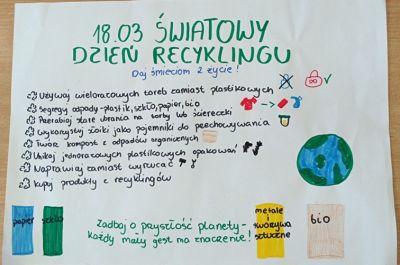 18.03 ŚWIATOWY
DZIEŃ RECYKLINGU
Daj śmieciom 2 życie!
Używaj wielorazowych toreb zamiast plastikowych
Segreguj odpady - plastik, szkło, papier, bio
Przerabiaj stare ubrania na torby lub ściereczki
Wykorzystuj słoiki jako pojemniki do przechowywania
Twórz kompost z odpadów organicznych
Unikaj jednorazowych plastikowych opakowań
Naprawiaj zamiast wyrzucać
Kupuj produkty z recyklingów
papier
szkło
Zadbaj o przyszłość planety-
każdy mały gest ma znaczenie!
metale
i tworzywa
sztuczne
bio